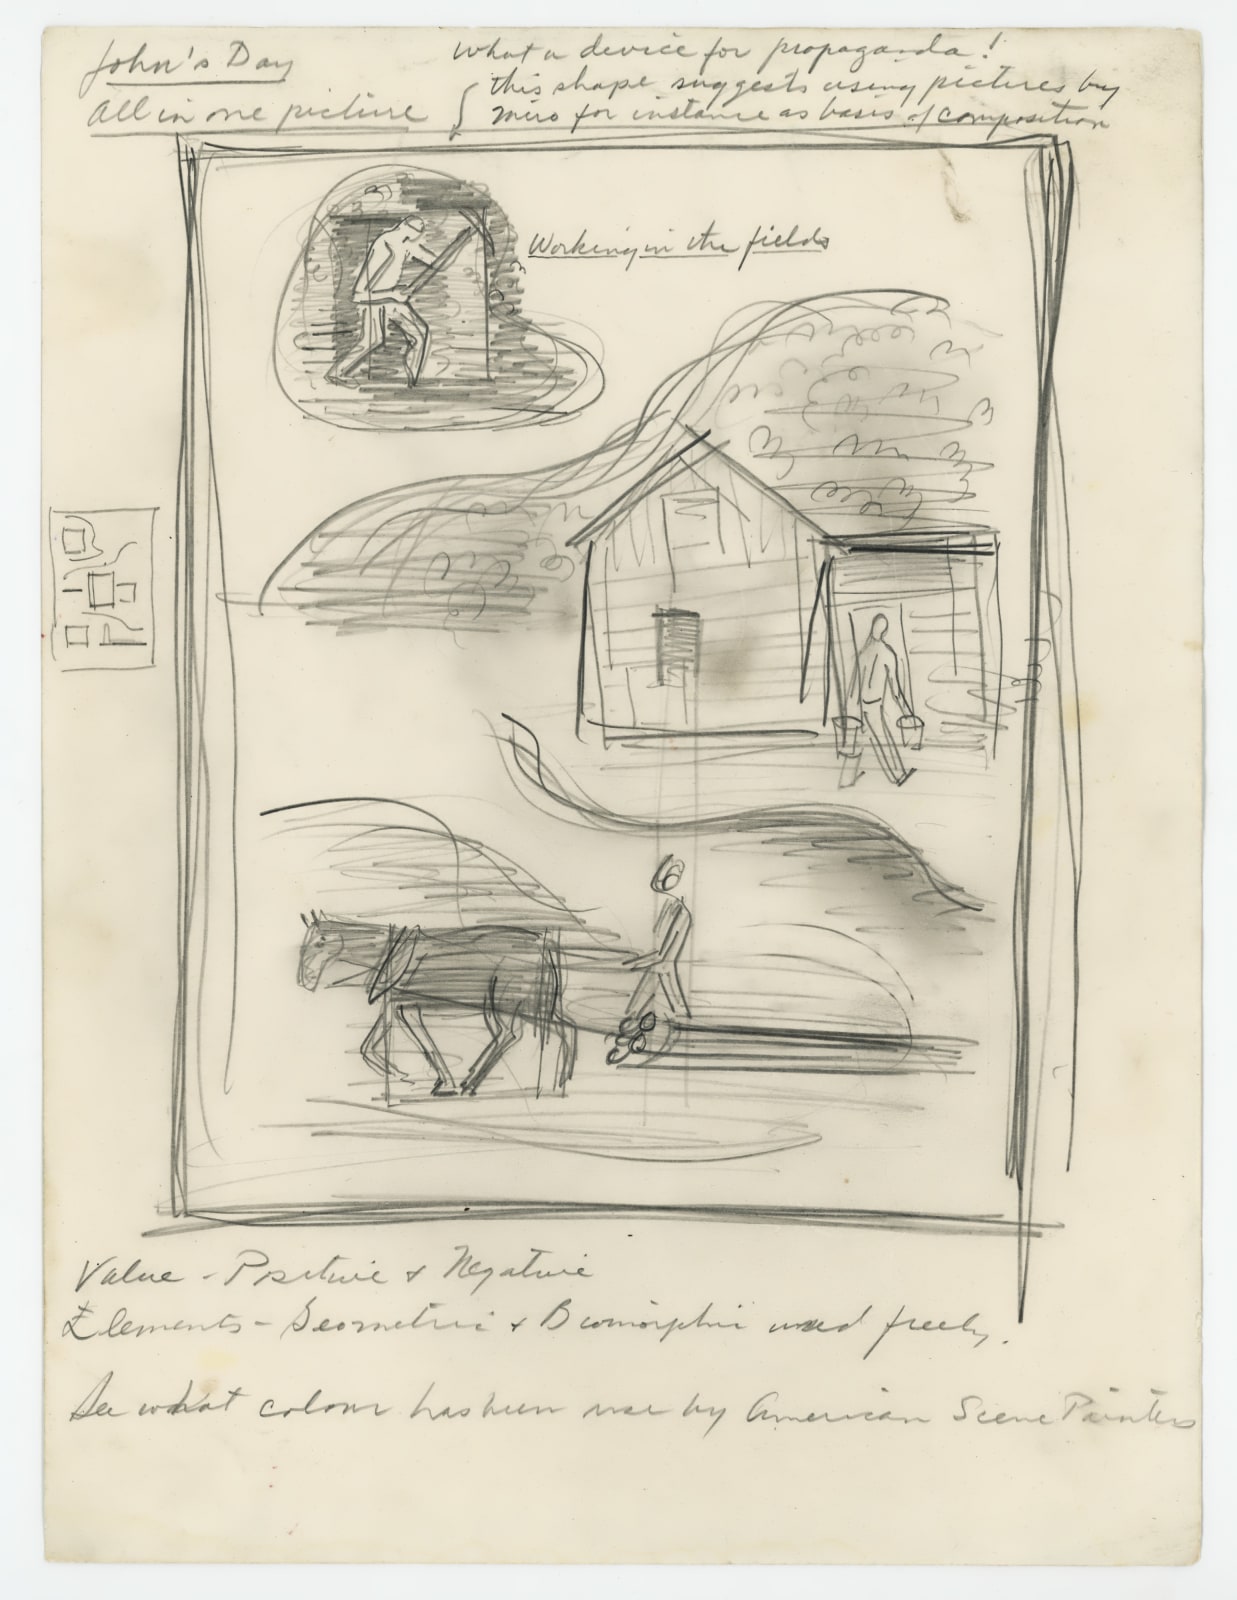 John's Day
All in one picture
what a device for propaganda!
this shape suggests using pictures by
miro for instance as basis of composition
Working in the fields
Value - Positive & Negative
Elements - Geometric & Biomorphic used freely.
See what colour has been use by American Scene Painters